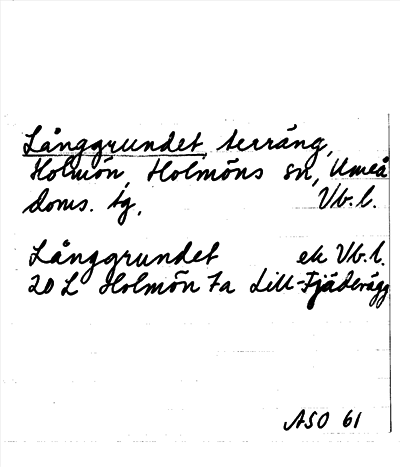 Långgrundet, terräng,
Holmön, Holmöns sn, Umeå
doms. tg, Vb. l.
Långgrundet ek Vb. l.
20 L Holmön 7a Lill-Fjäderägg
ASO 61